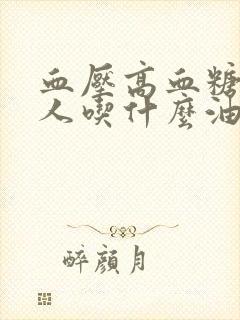 血壓高血糖
人喫什麼油
醉顏月